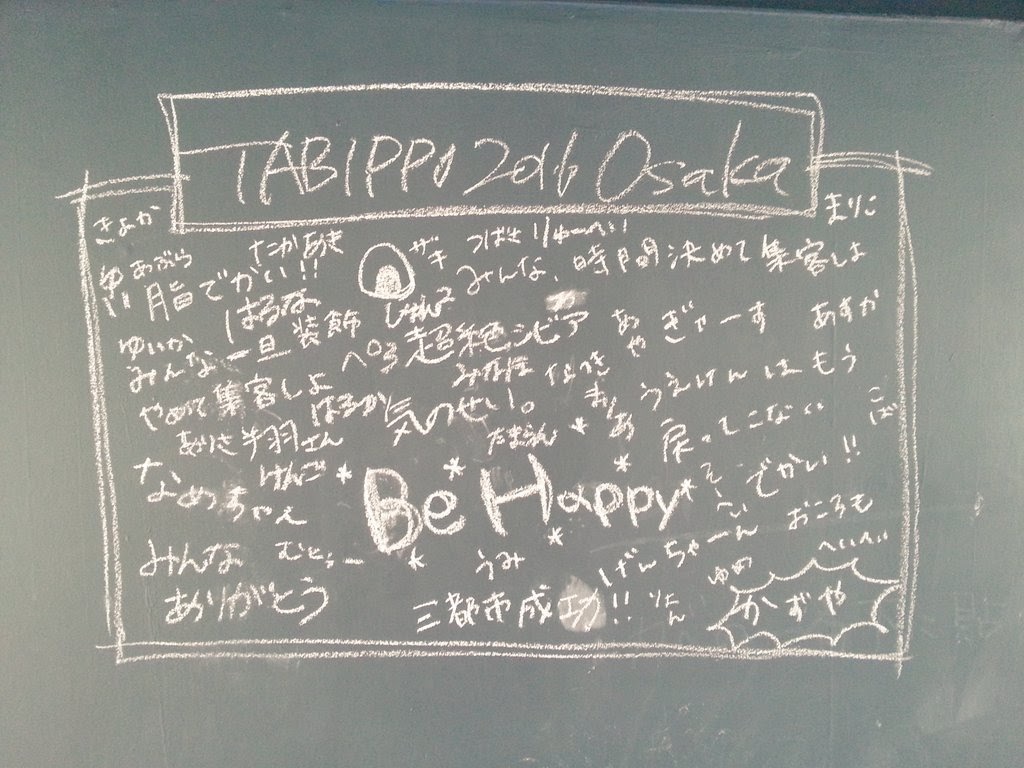 TABIPPO 2016 Osaka
きよか
まりこ
たかあき
ザキ
つばさ りゅーへい
あぶら
脂でかい!!
みんな、時間決めて集客しよ
はるな
ゆいか
みんな一旦装飾
やめて集客しよ
超絶シビア
気のせい。
みなほ
なつき
まりあ
あや
ぎゃーす
あすか
うえけんはもう
戻ってこない
はるか
ありさ 半羽さん
けんご
なめちゃん
Be Happy
でかい!!
おころも
へいへい
みんな
ありがとう
うみ
げんちゃーん
ゆめ
三都市成功!!
かずや